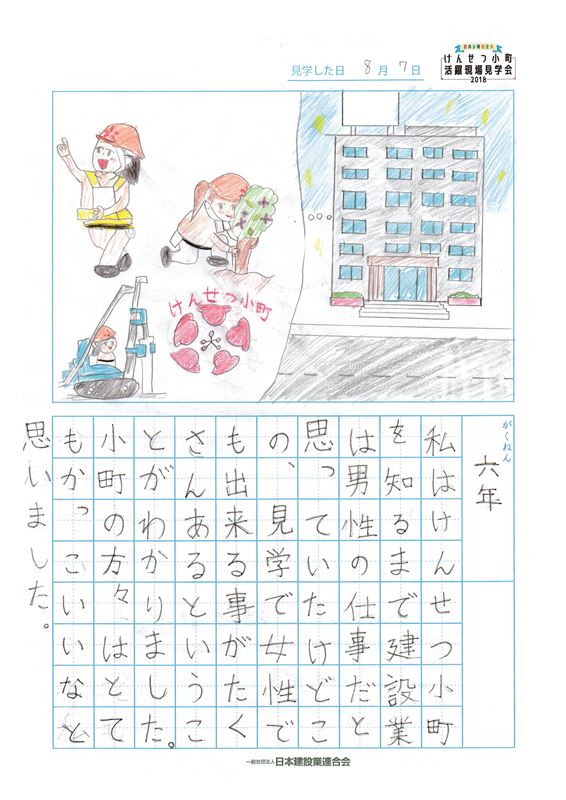 見学した日 8月7日
けんせつ小町
活躍現場見学会
2018
けんせつ小町
がくねん
六年
私はけんせつ小町
を知るまで建設業
は男性の仕事だと
思っていたけどこ
の、見学で女性で
も出来る事がたく
さんあるというこ
とがわかりました。
小町の方々はとて
もかっこいいなと
思いました。
一般社団法人 日本建設業連合会